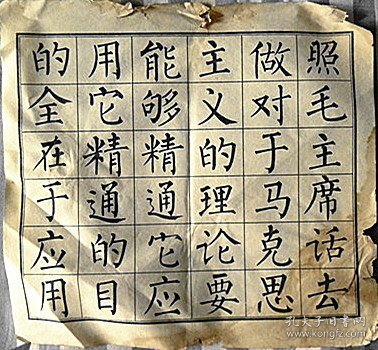 照毛主席话去
做对于马克思
主义的理论要
能够精通它应
用它精通的目
的全在于应用
孔夫子旧书网
www.kongfz.com